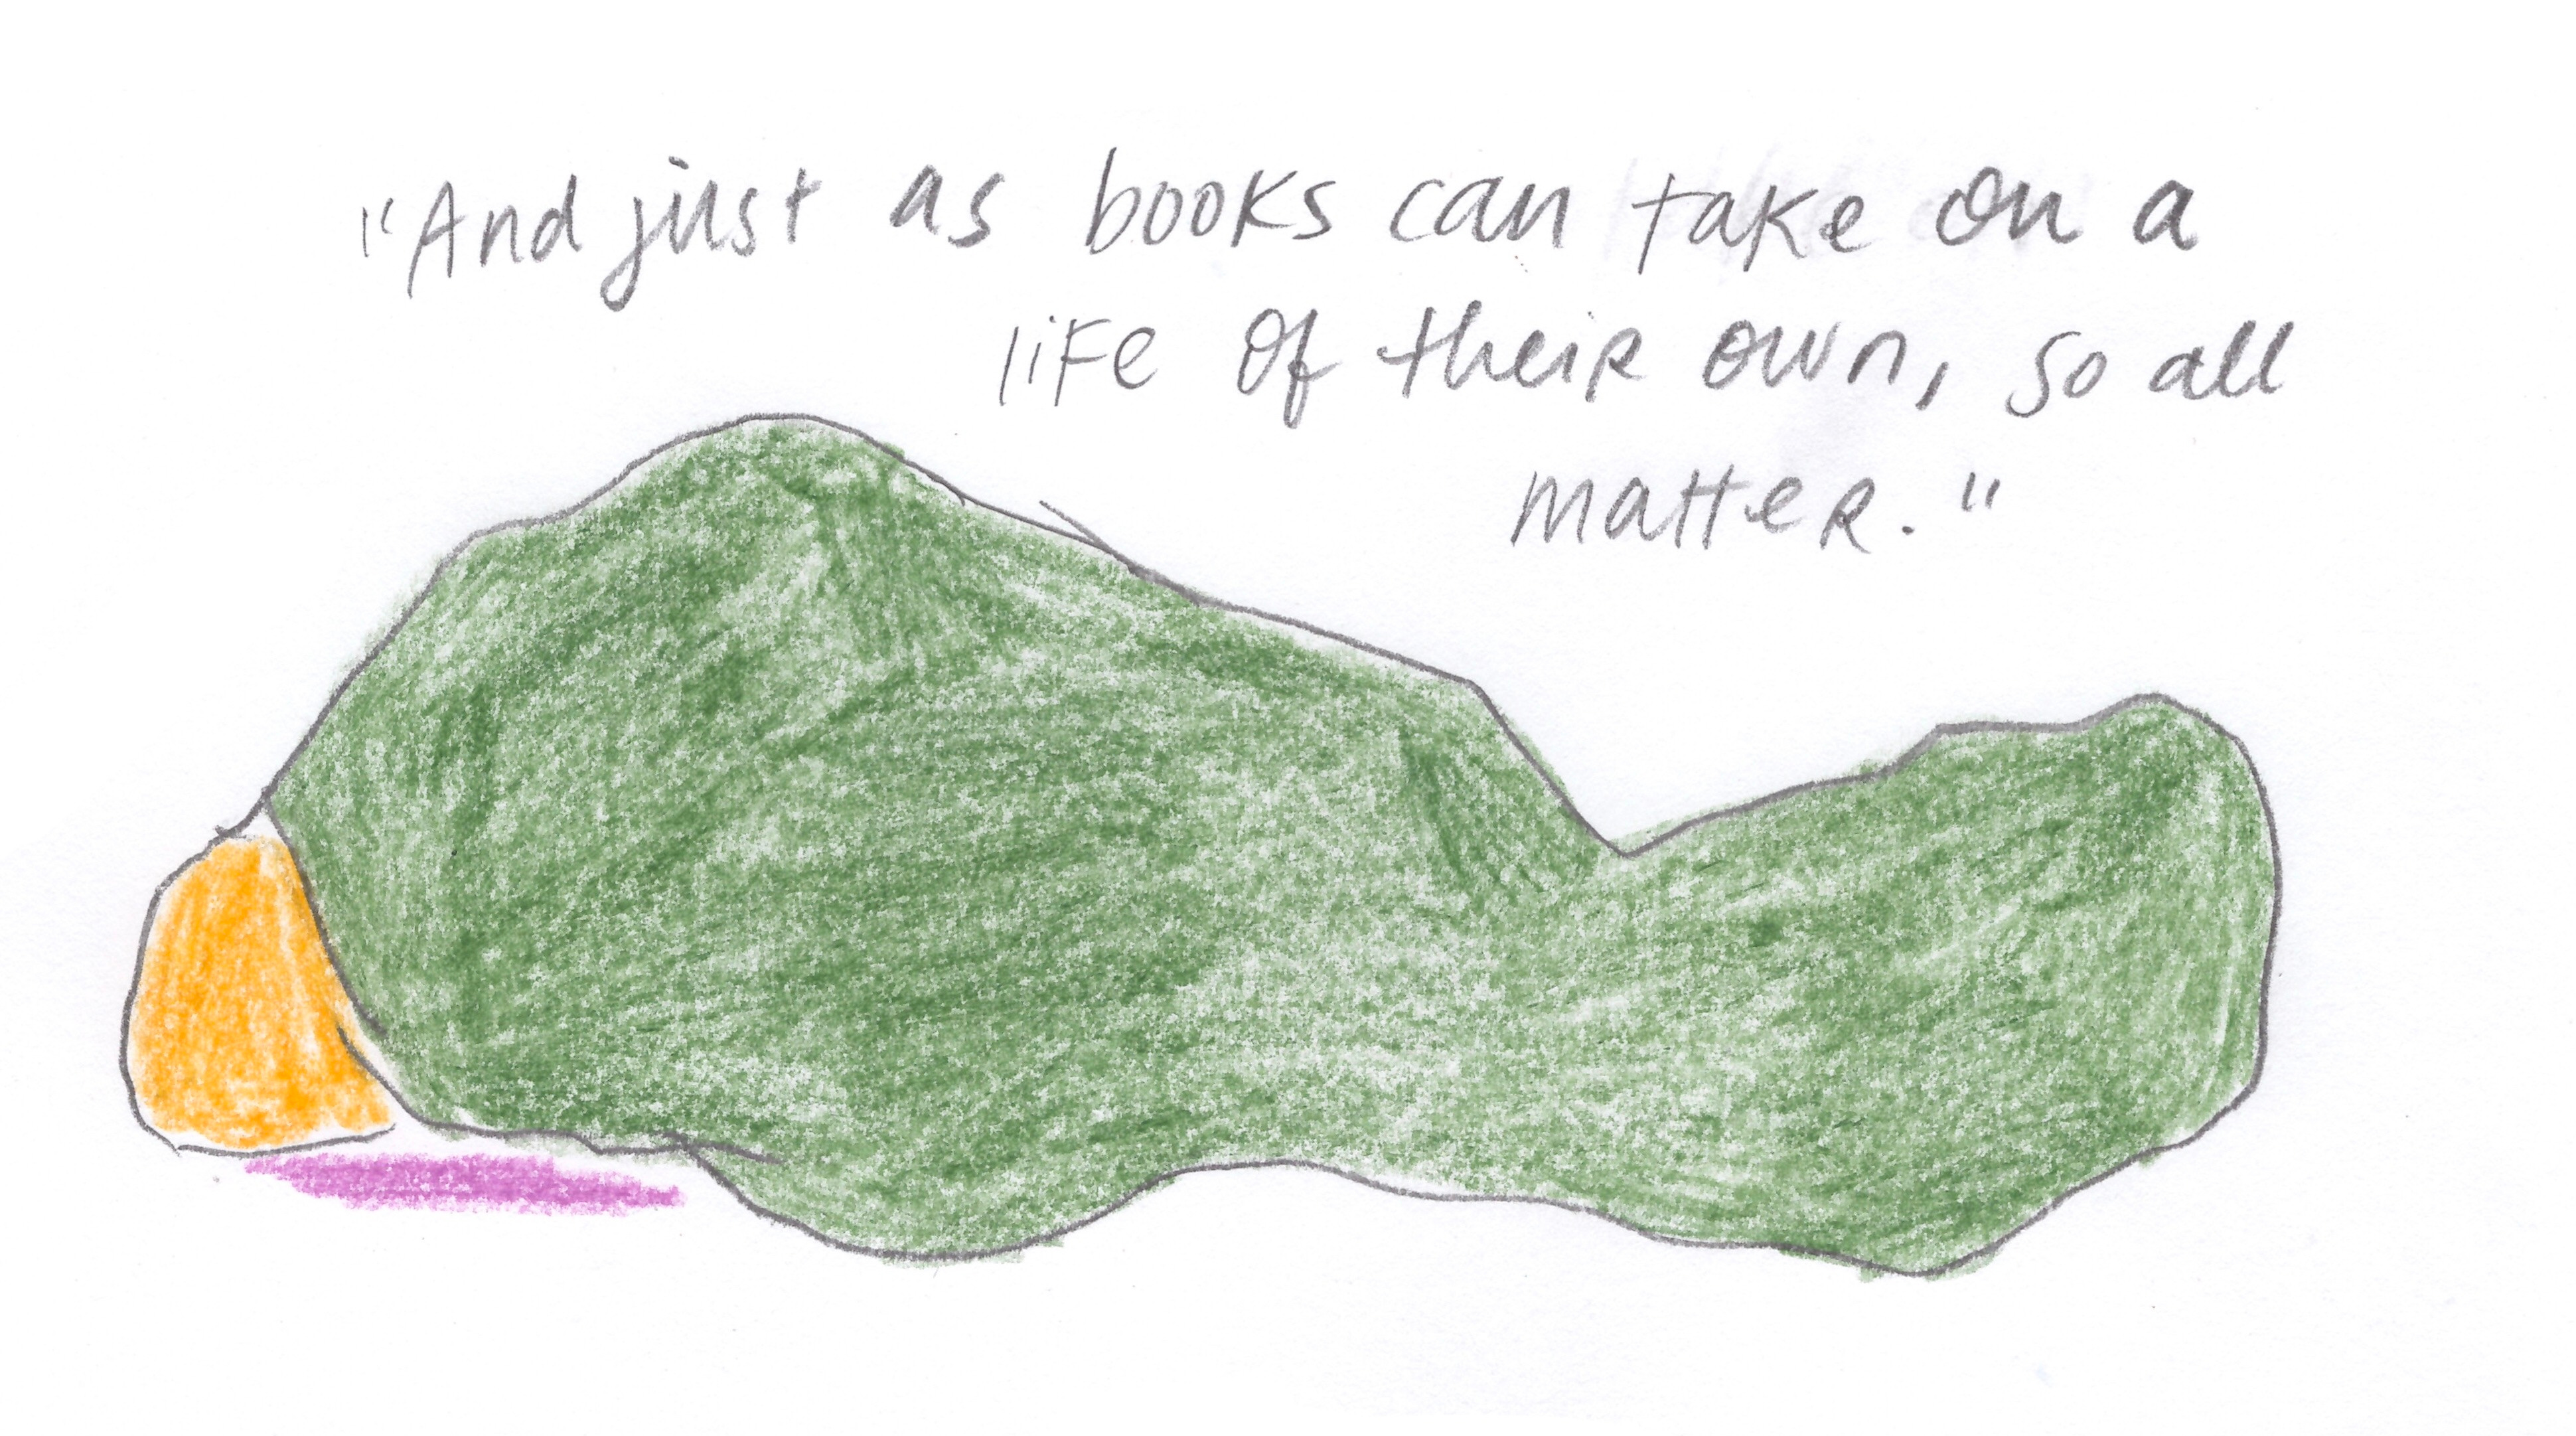 "And just as books can take on a
life of their own, so all
matter."